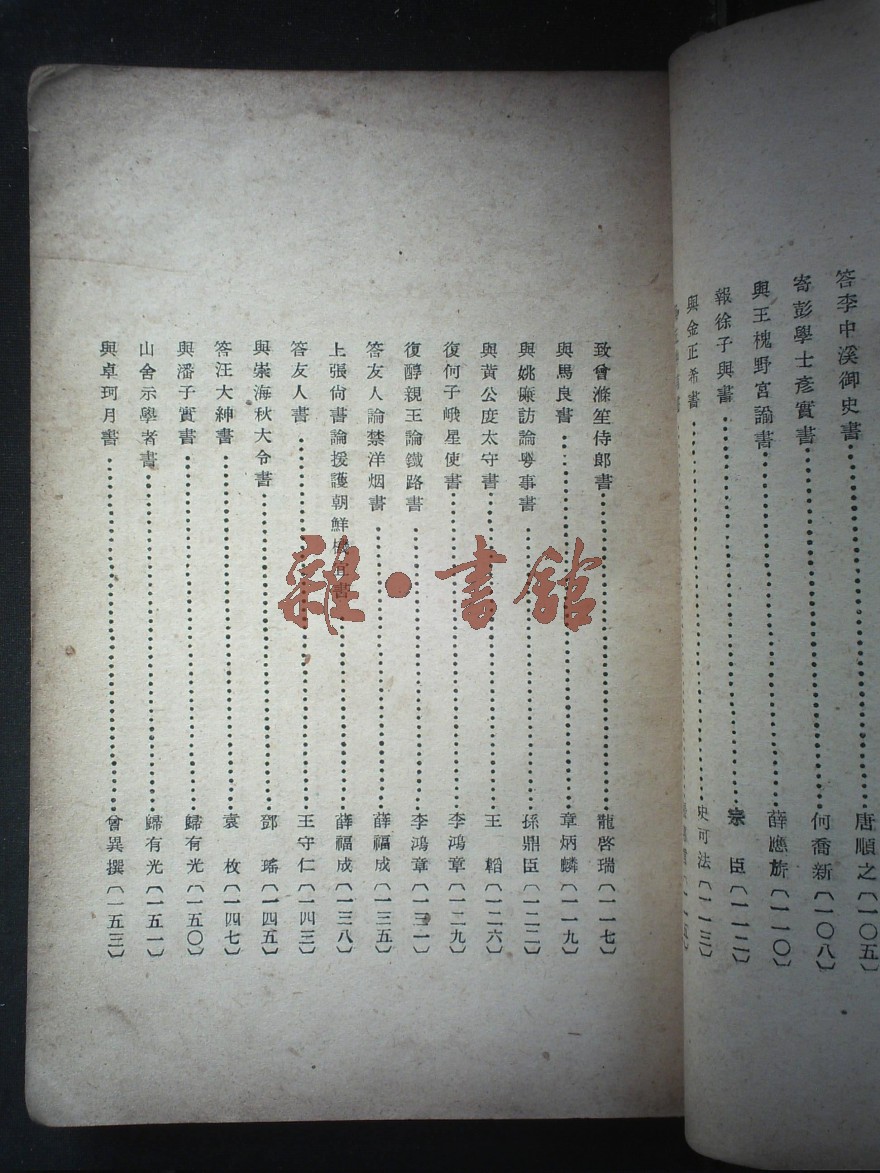 答李中溪御史書……唐順之〔一〇五〕
寄彭學士彥實書……何喬新〔一〇八〕
與王槐野宮諭書……薛應旂〔一一〇〕
報徐子與書……宗臣〔一一二〕
與金正希書……史可法〔一一三〕
致曾滌笙侍郎書……龍啓瑞〔一一七〕
與馬良書……章炳麟〔一一九〕
與姚廉訪論粵事書……孫鼎臣〔一二二〕
與黃公度太守書……王韜〔一二六〕
復何子峨星使書……李鴻章〔一二九〕
復醇親王論鐵路書……李鴻章〔一三一〕
答友人論禁洋烟書……薛福成〔一三五〕
上張尙書論援護朝鮮機宜書……薛福成〔一三八〕
答友人書……王守仁〔一四三〕
與崇海秋大令書……鄧瑤〔一四五〕
答汪大紳書……袁枚〔一四七〕
與潘子實書……歸有光〔一五〇〕
山舍示學者書……歸有光〔一五一〕
與卓珂月書……曾異撰〔一五三〕
雜·書館